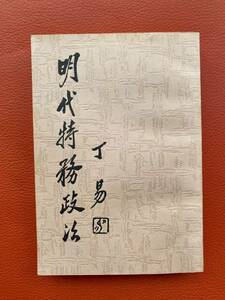 明代特務政治
丁易